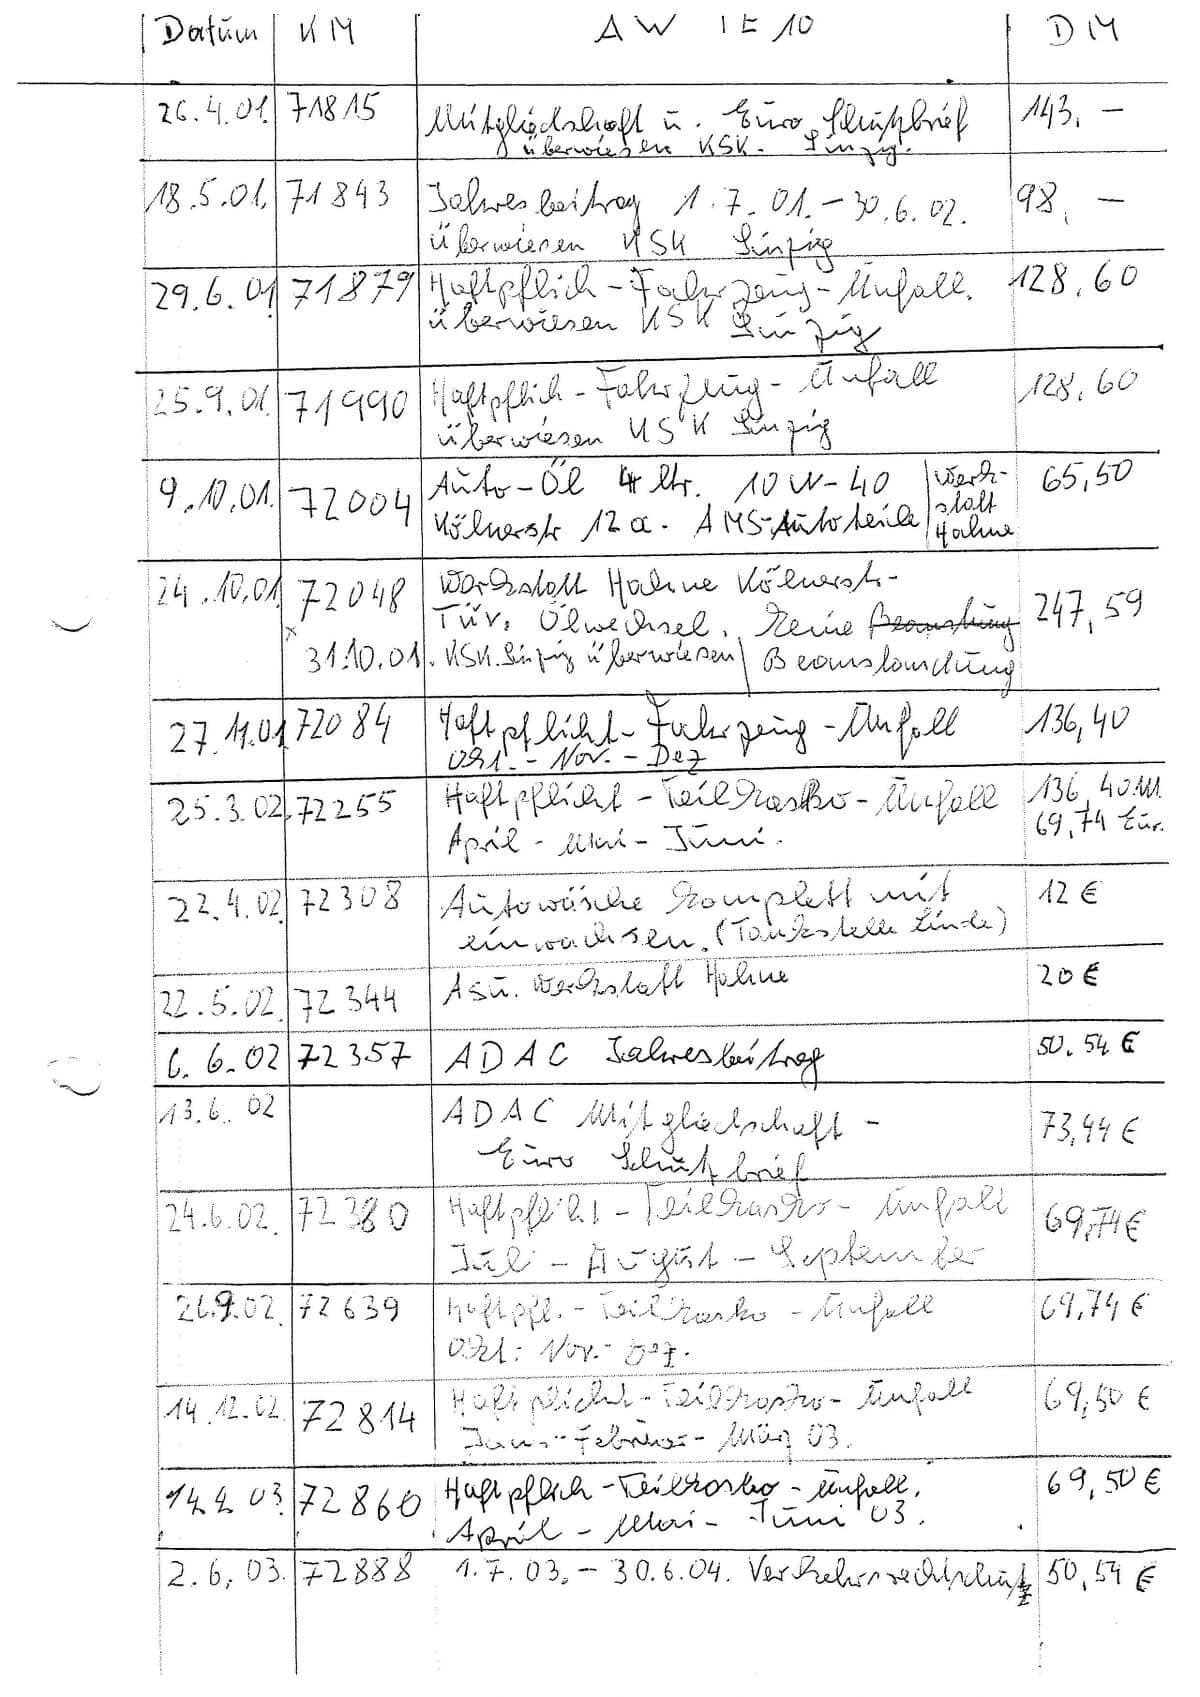 Datum KM AW IE 10 DM
26.4.01. 71815 Mitgliedschaft u. Euro Schutzbrief 143. –
überwiesen KSK. Sinzig.
18.5.01. 71843 Jahresbeitrag 1.7.01. – 30.6.02. 98. –
überwiesen KSK Sinzig
29.6.01 71879 Haftpflich – Fahrzeug – Unfall. 128.60
überwiesen KSK Sinzig
25.9.01. 71990 Haftpflich – Fahrzeug – Unfall 128.60
überwiesen KSK Sinzig
9.10.01. 72004 Auto – Öl 4 ltr. 10 W – 40 Werk- 65,50
Kölnerstr 12 a. AMS-Autoteile statt
Hahne
24.10.01 72048 Werkstatt Hahne Kölnerstr-
TÜV. Ölwechsel. Keine Beanstung 247,59
x
31.10.01. KSK. Sinzig überwiesen Beanstandung
27.11.01 72084 Haftpflicht – Fahrzeug – Unfall 136,40
Okt. – Nov. – Dez
25.3.02. 72255 Haftpflicht – Teilkasko – Unfall 136,40 M
April – Mai – Juni. 69,74 Eur.
22.4.02. 72308 Autowäsche komplett mit 12 €
einwachsen. (Tankstelle Linde)
22.5.02. 72344 Asu. Werkstatt Hahne 20 €
6.6.02 72357 ADAC Jahresbeitrag 50.54 €
13.6.02 ADAC Mitgliedschaft – 73,44 €
Euro Schutzbrief
24.6.02. 72380 Haftpflicht – Teilkasko – Unfall 69,74 €
Juli – August – September
26.9.02. 72639 Haftpfl. – Teilkasko – Unfall 69,74 €
Okt. Nov. – Dez.
14.12.02. 72814 Haftpflicht – Teilkasko – Unfall 69,50 €
Jan. – Februar – März 03.
72860 Haftpflich – Teilkasko – Unfall. 69,50 €
April – Mai – Juni 03.
2.6.03. 72888 1.7.03. – 30.6.04. Verkehrsrechtschutz 50,54 €